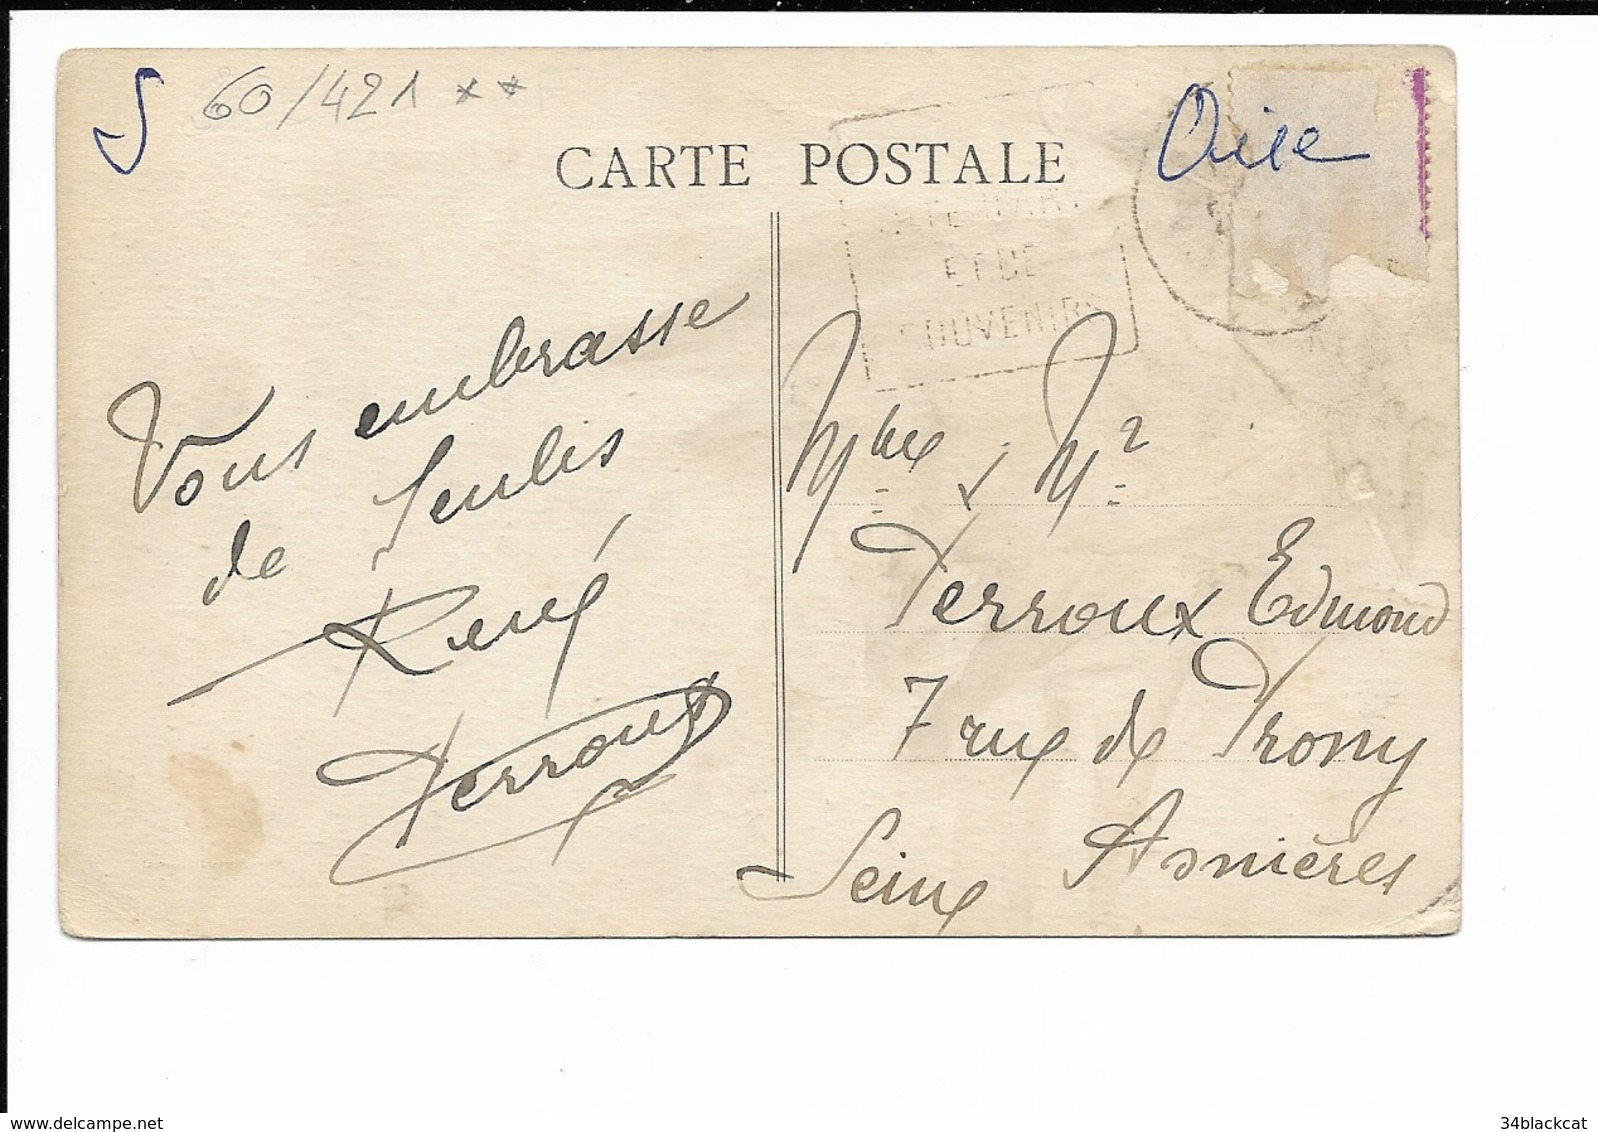 S 60/421 **
Oise
CARTE POSTALE
ET DE
SOUVENIRS
Vous embrasse
de Senlis
René
Perroux
Mme & Mr
Perroux Edmond
7 rue de Prony
Asnières
Seine
34blackcat